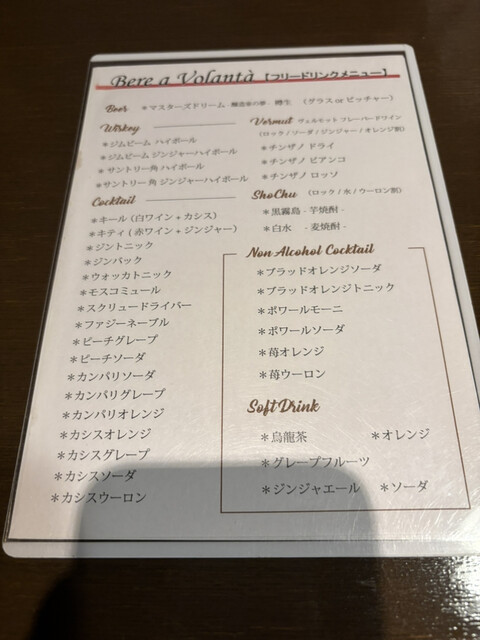 Bere a Volantà【フリードリンクメニュー】
Beer ＊マスターズドリーム - 醸造家の夢 - 樽生 （グラス or ピッチャー）
Wiskey
＊ジムビーム ハイボール
＊ジムビーム ジンジャーハイボール
＊サントリー角 ハイボール
＊サントリー角 ジンジャーハイボール
Cocktail
＊キール（白ワイン + カシス）
＊キティ（赤ワイン + ジンジャー）
＊ジントニック
＊ジンバック
＊ウォッカトニック
＊モスコミュール
＊スクリュードライバー
＊ファジーネーブル
＊ピーチグレープ
＊ピーチソーダ
＊カンパリソーダ
＊カンパリグレープ
＊カンパリオレンジ
＊カシスオレンジ
＊カシスグレープ
＊カシスソーダ
＊カシスウーロン
Vermut ヴェルモット フレーバードワイン
（ロック / ソーダ / ジンジャー / オレンジ割）
＊チンザノ ドライ
＊チンザノ ビアンコ
＊チンザノ ロッソ
ShoChu （ロック / 水 / ウーロン割）
＊黒霧島 - 芋焼酎 -
＊白水 - 麦焼酎 -
Non Alcohol Cocktail
＊ブラッドオレンジソーダ
＊ブラッドオレンジトニック
＊ポワールモーニ
＊ポワールソーダ
＊苺オレンジ
＊苺ウーロン
Soft Drink
＊烏龍茶 ＊オレンジ
＊グレープフルーツ
＊ジンジャエール ＊ソーダ